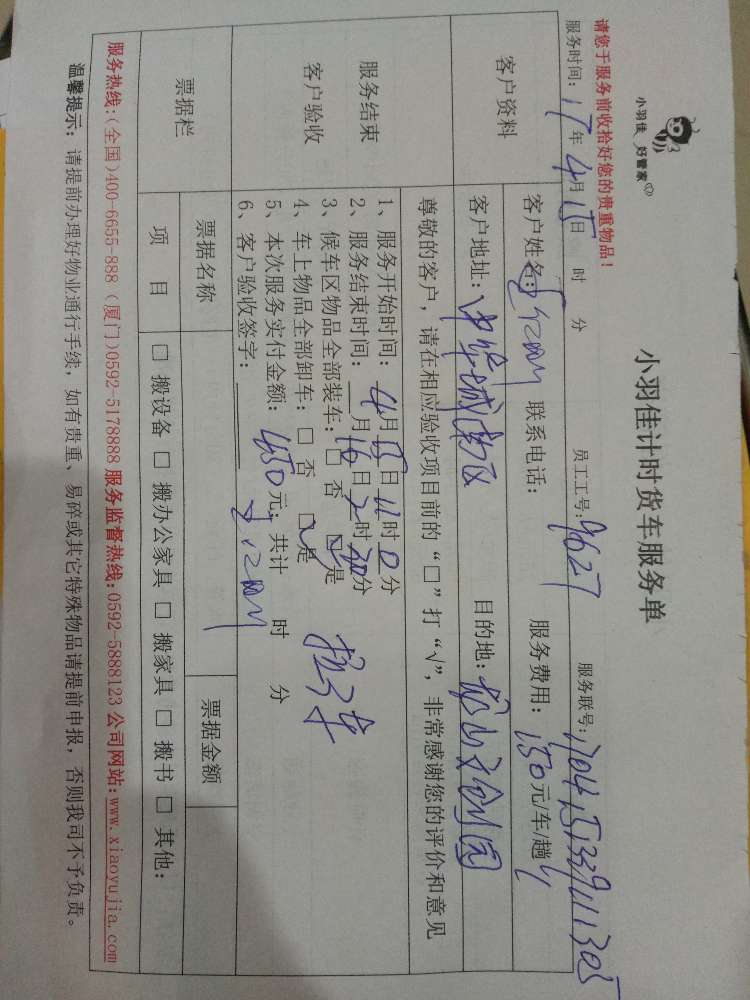 小羽佳 好管家
小羽佳计时货车服务单
请您于服务前收拾好您的贵重物品!
服务时间: 17年4月15日 时 分 员工工号: 9627 服务联号:
客户资料
客户姓名: 联系电话: 服务费用: 150元/车/趟
客户地址: 中华城南区 目的地: 龙山文创园
尊敬的客户，请在相应验收项目前的“□”打“√”，非常感谢您的评价和意见
服务结束
客户验收
1、服务开始时间: 4月15日11时0分
2、服务结束时间: 月16日2时30分
3、候车区物品全部装车: □ 否 ☑是
4、车上物品全部卸车: □ 否 ☑是
5、本次服务实付金额: 450元; 共计 时 分
6、客户验收签字:
票据栏
票据名称 票据金额
项 目 □ 搬设备 □ 搬办公家具 □ 搬家具 □ 搬书 □ 其他:
服务热线:(全国)400-6655-888 (厦门)0592-5178888 服务监督热线:0592-5888123 公司网站:www.xiaoyujia.com
温馨提示: 请提前办理好物业通行手续，如有贵重、易碎或其它特殊物品请提前申报，否则我司不予负责。